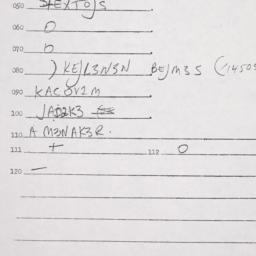 050 STEXTOJS
060 O
070 O
080 ) KEJL3N3N BEJM3S (/14505
090 KACOV2M
100
110 A M3NAK3R.
111 + 112 O
120 —